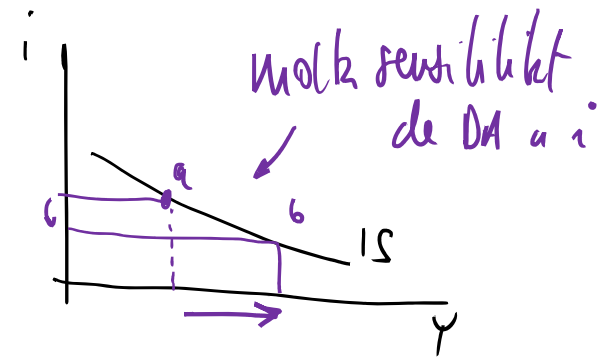 i
molta sensibilitat
de DA a i
a
b
IS
Y